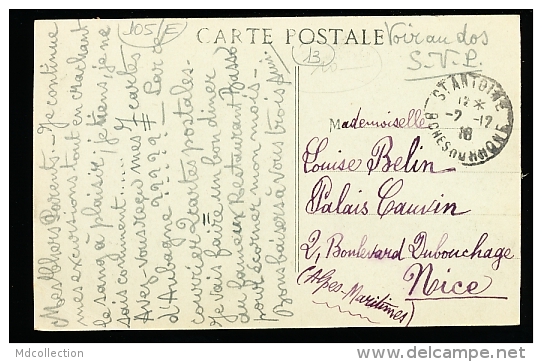 105/E
CARTE POSTALE
13
Voir au dos
S.V.P.
Mes Chers Parents. Je continue
mes excursions tout en crachant
le sang à plaisir, je tiens, je ne
sais comment....
Avez-vous reçu mes 7 cartes
d'Aubagne ?????
courrier 2 cartes postales.
Je vais faire un bon dîner
du fameux Restaurant Basso
écorner mon mois.
Bons baisers à vous trois
ST ANTOINE
12 *
-2 -12
18
BCHES DU RHONE
Mademoiselle
Louise Belin
Palais Cauvin
2, Boulevard Dubouchage
Nice
(Alpes-Maritimes)
Mdcollection
www.delcampe.net